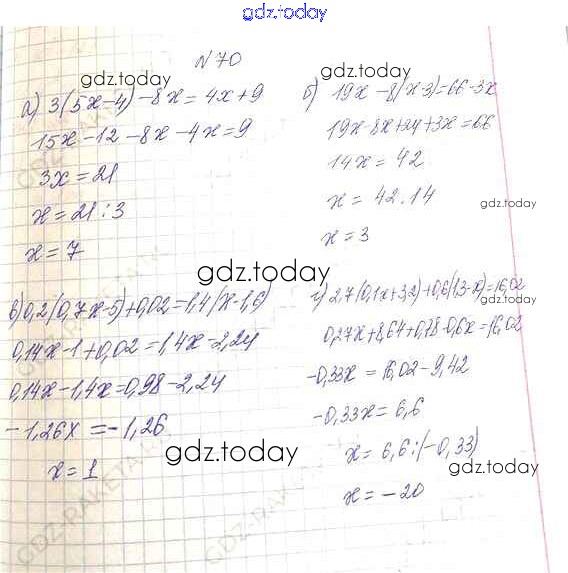 gdz.today
№ 70
gdz.today
а) 3(5x-4)-8x=4x+9
15x-12-8x-4x=9
3x=21
x=21:3
x=7
б) 19x-8(x-3)=66-3x
19x-8x+24+3x=66
14x=42
x=42.14
gdz.today
x=3
gdz.today
gdz.today
в) 0,2(0,7x-5)+0,02=1,4(x-1,6)
0,14x-1+0,02=1,4x-2,24
0,14x-1,4x=0,98-2,24
-1,26x=-1,26
x=1
г) 2,7(0,1x+3,2)+0,6(1,3-x)=16,02
0,27x+8,64+0,78-0,6x=16,02
-0,33x=16,02-9,42
-0,33x=6,6
x=6,6:(-0,33)
x=-20
gdz.today
gdz.today
GDZ-RAKETA